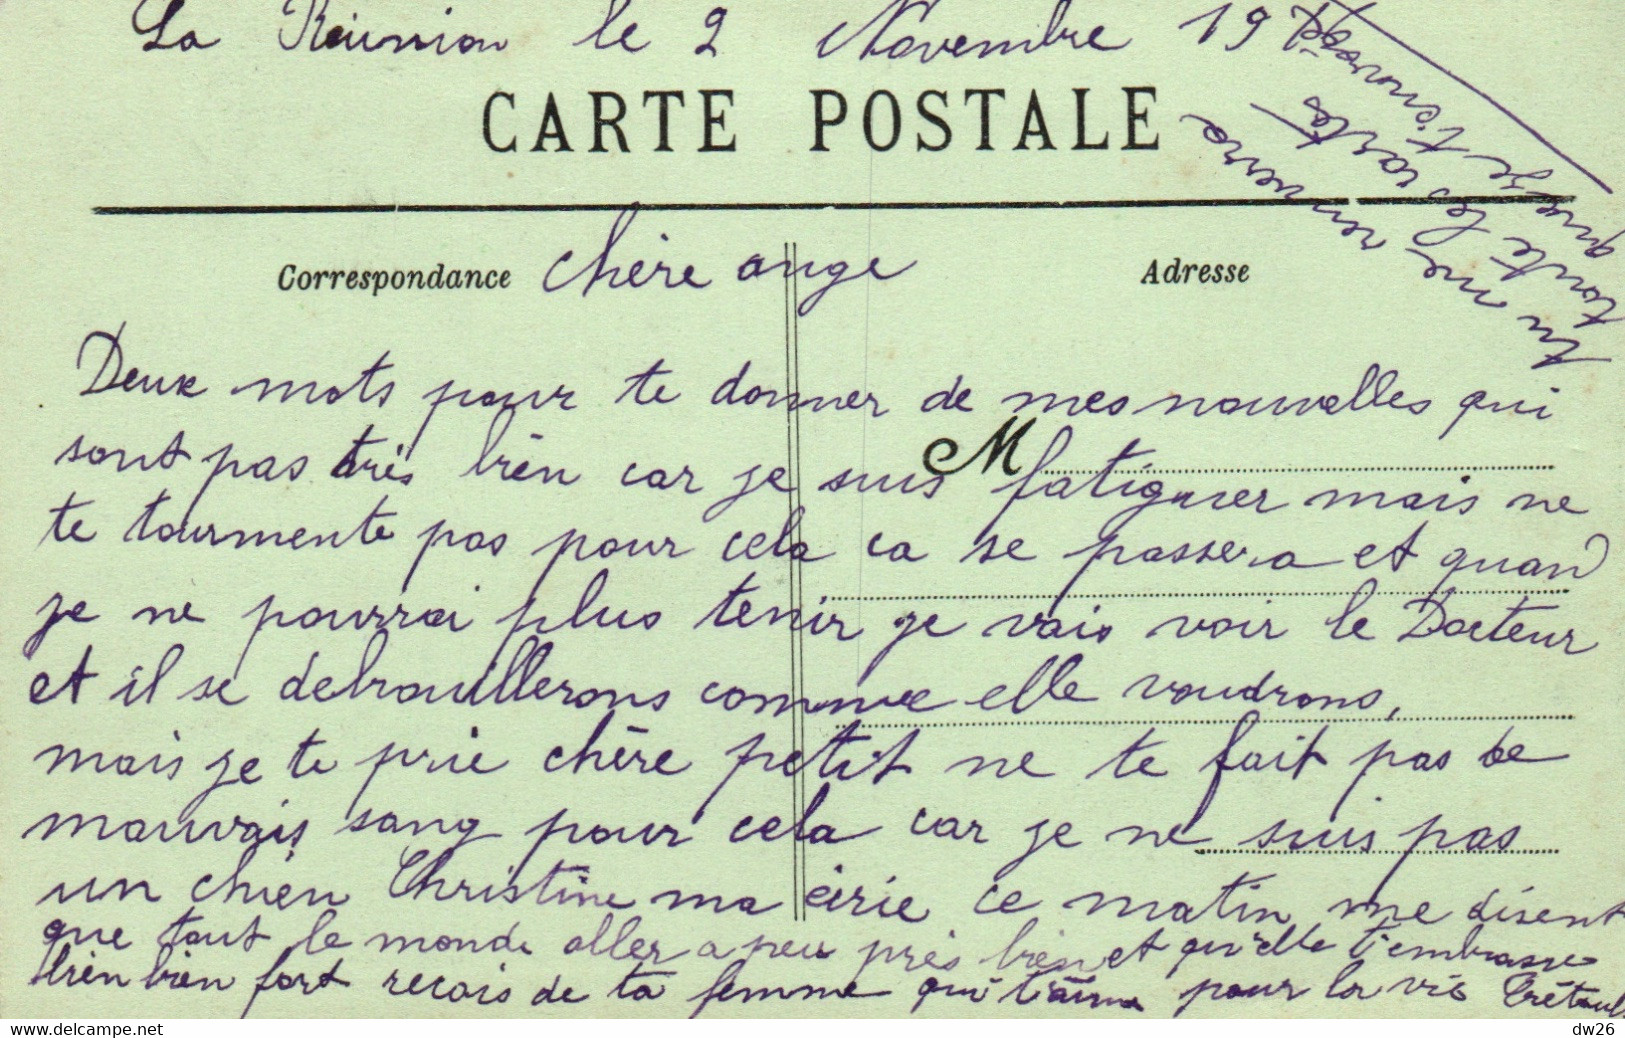 La Réunion le 2 Novembre 19
CARTE POSTALE
Correspondance
Chère ange
Adresse
M
Deux mots pour te donner de mes nouvelles qui
sont pas très bien car je suis fatiguer mais ne
te tourmente pas pour cela ca se passera et quand
je ne pourrai plus tenir je vais voir le Docteur
et il se debrouillerons comme elle voudrons,
mais je te prie chère petit ne te fait pas de
mauvais sang pour cela car je ne suis pas
un chien Christine ma écrie ce matin me disent
que tout le monde aller a peu près bien et qu'elle t'embrasse
bien bien fort recois de ta femme qui t'aime pour la vie
tu me renverra
toute les cartes
que je t'envoie
dw26